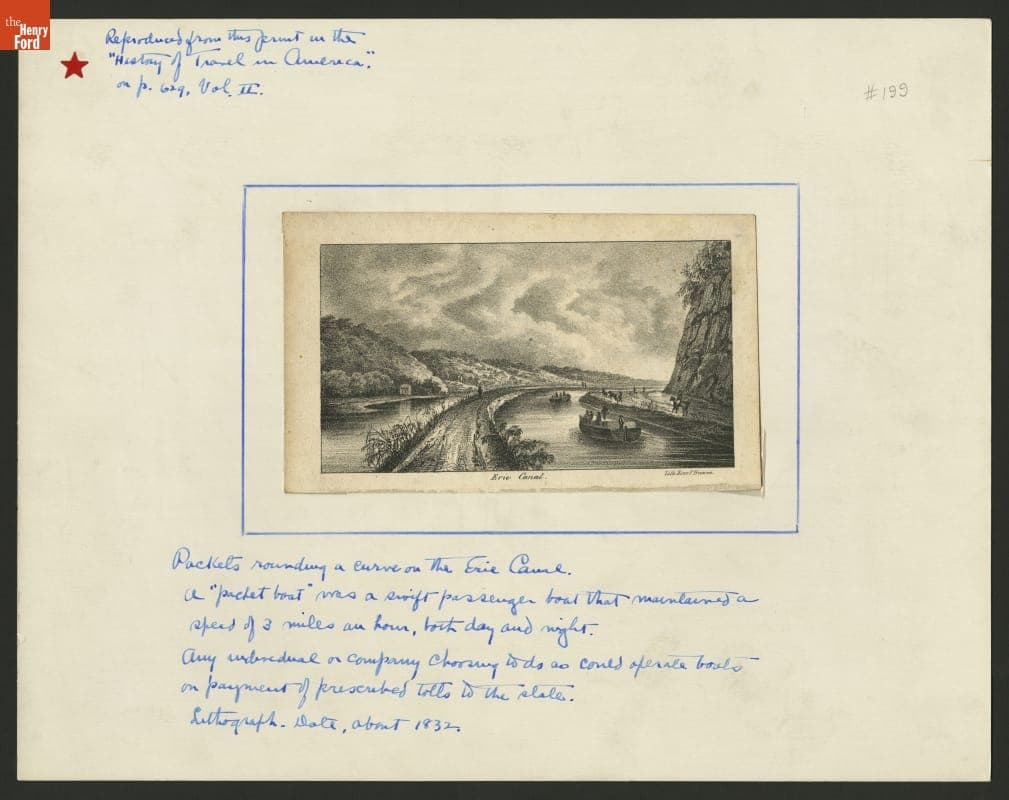 the
Henry
Ford
Reproduced from this print in the
"History of Travel in America."
on p. 629, Vol. II.
#199
Erie Canal.
Packets rounding a curve on the Erie Canal.
A "packet boat" was a swift passenger boat that maintained a
speed of 3 miles an hour, both day and night.
Any individual or company choosing to do so could operate boats
on payment of prescribed tolls to the state.
Lithograph. Date, about 1832.